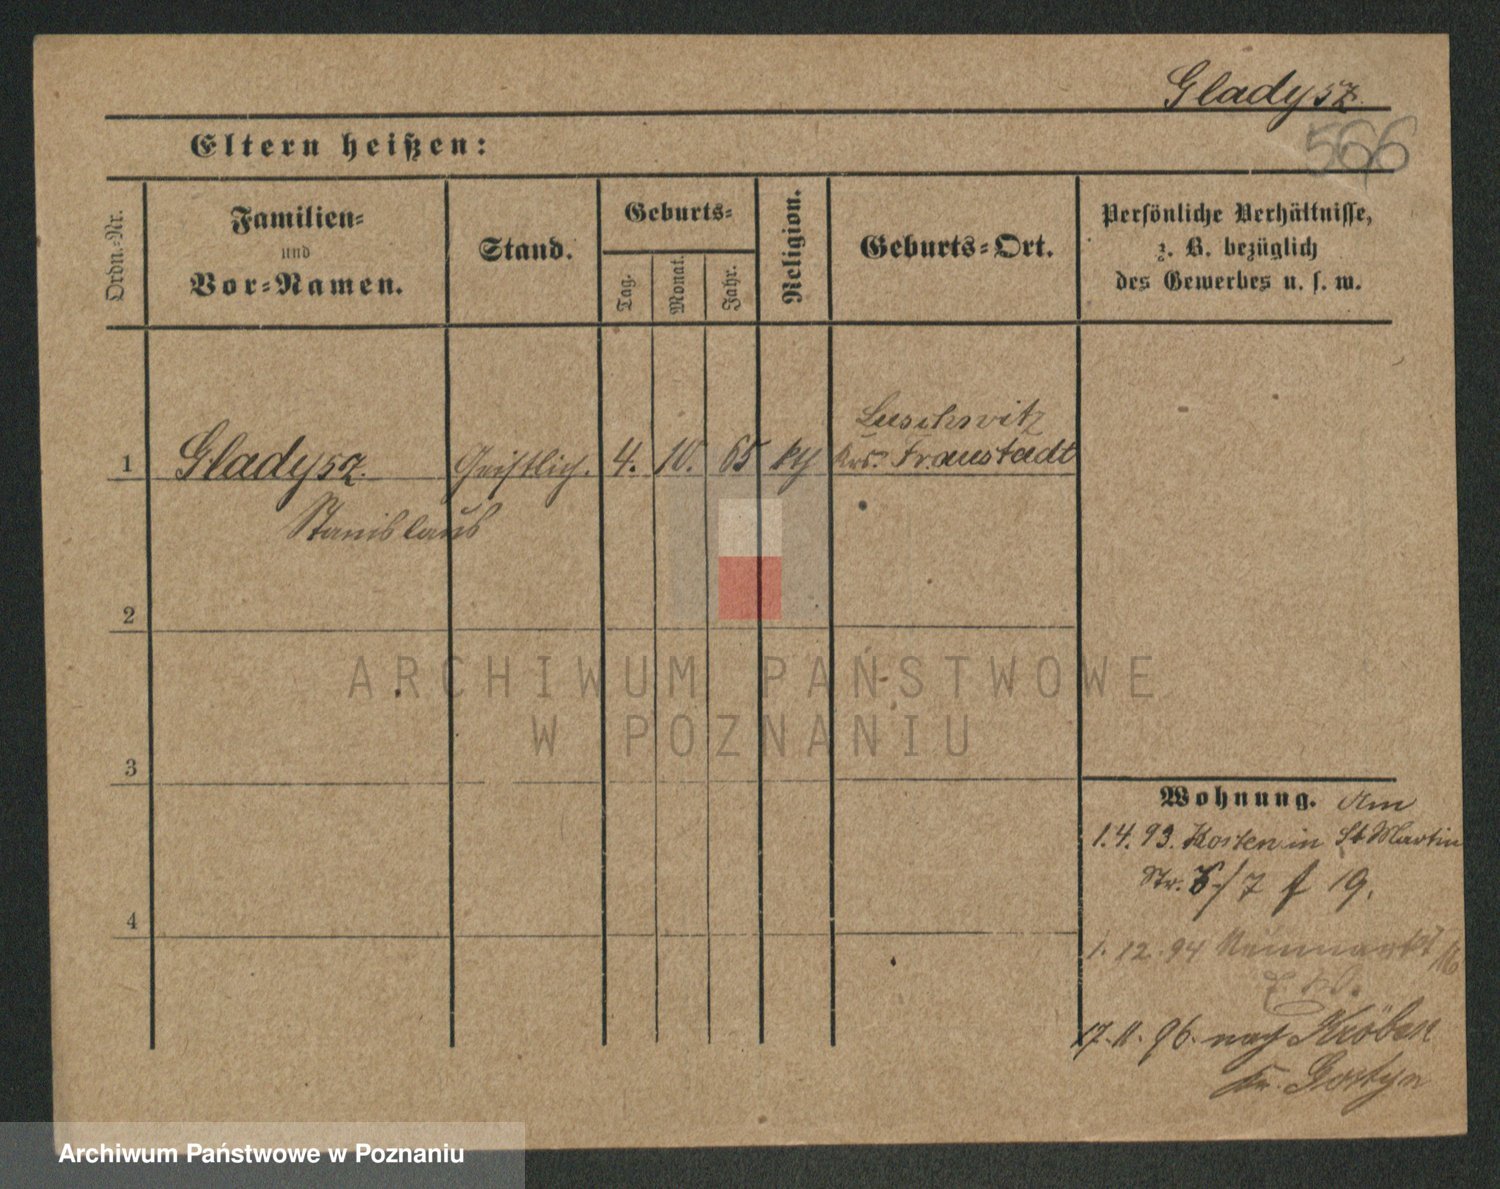 Gladysz
566
Eltern heißen:
Ordn.-Nr.
Familien-
und
Vor-Namen.
Stand.
Geburts-
Tag.
Monat.
Jahr.
Religion.
Geburts-Ort.
Persönliche Verhältnisse,
z. B. bezüglich
des Gewerbes u. s. w.
Luschwitz
1 Gladysz. Geistlich. 4. 10. 65 Krs. Fraustadt
Stanislaus
2
ARCHIWUM PAŃSTWOWE
W POZNANIU
3
Wohnung. Am
1.4.93. Kosten in St Martin
Str. 7 19.
4
1.12.94
17.11.96. nach Kröben
Kr. Gostyn
Archiwum Państwowe w Poznaniu